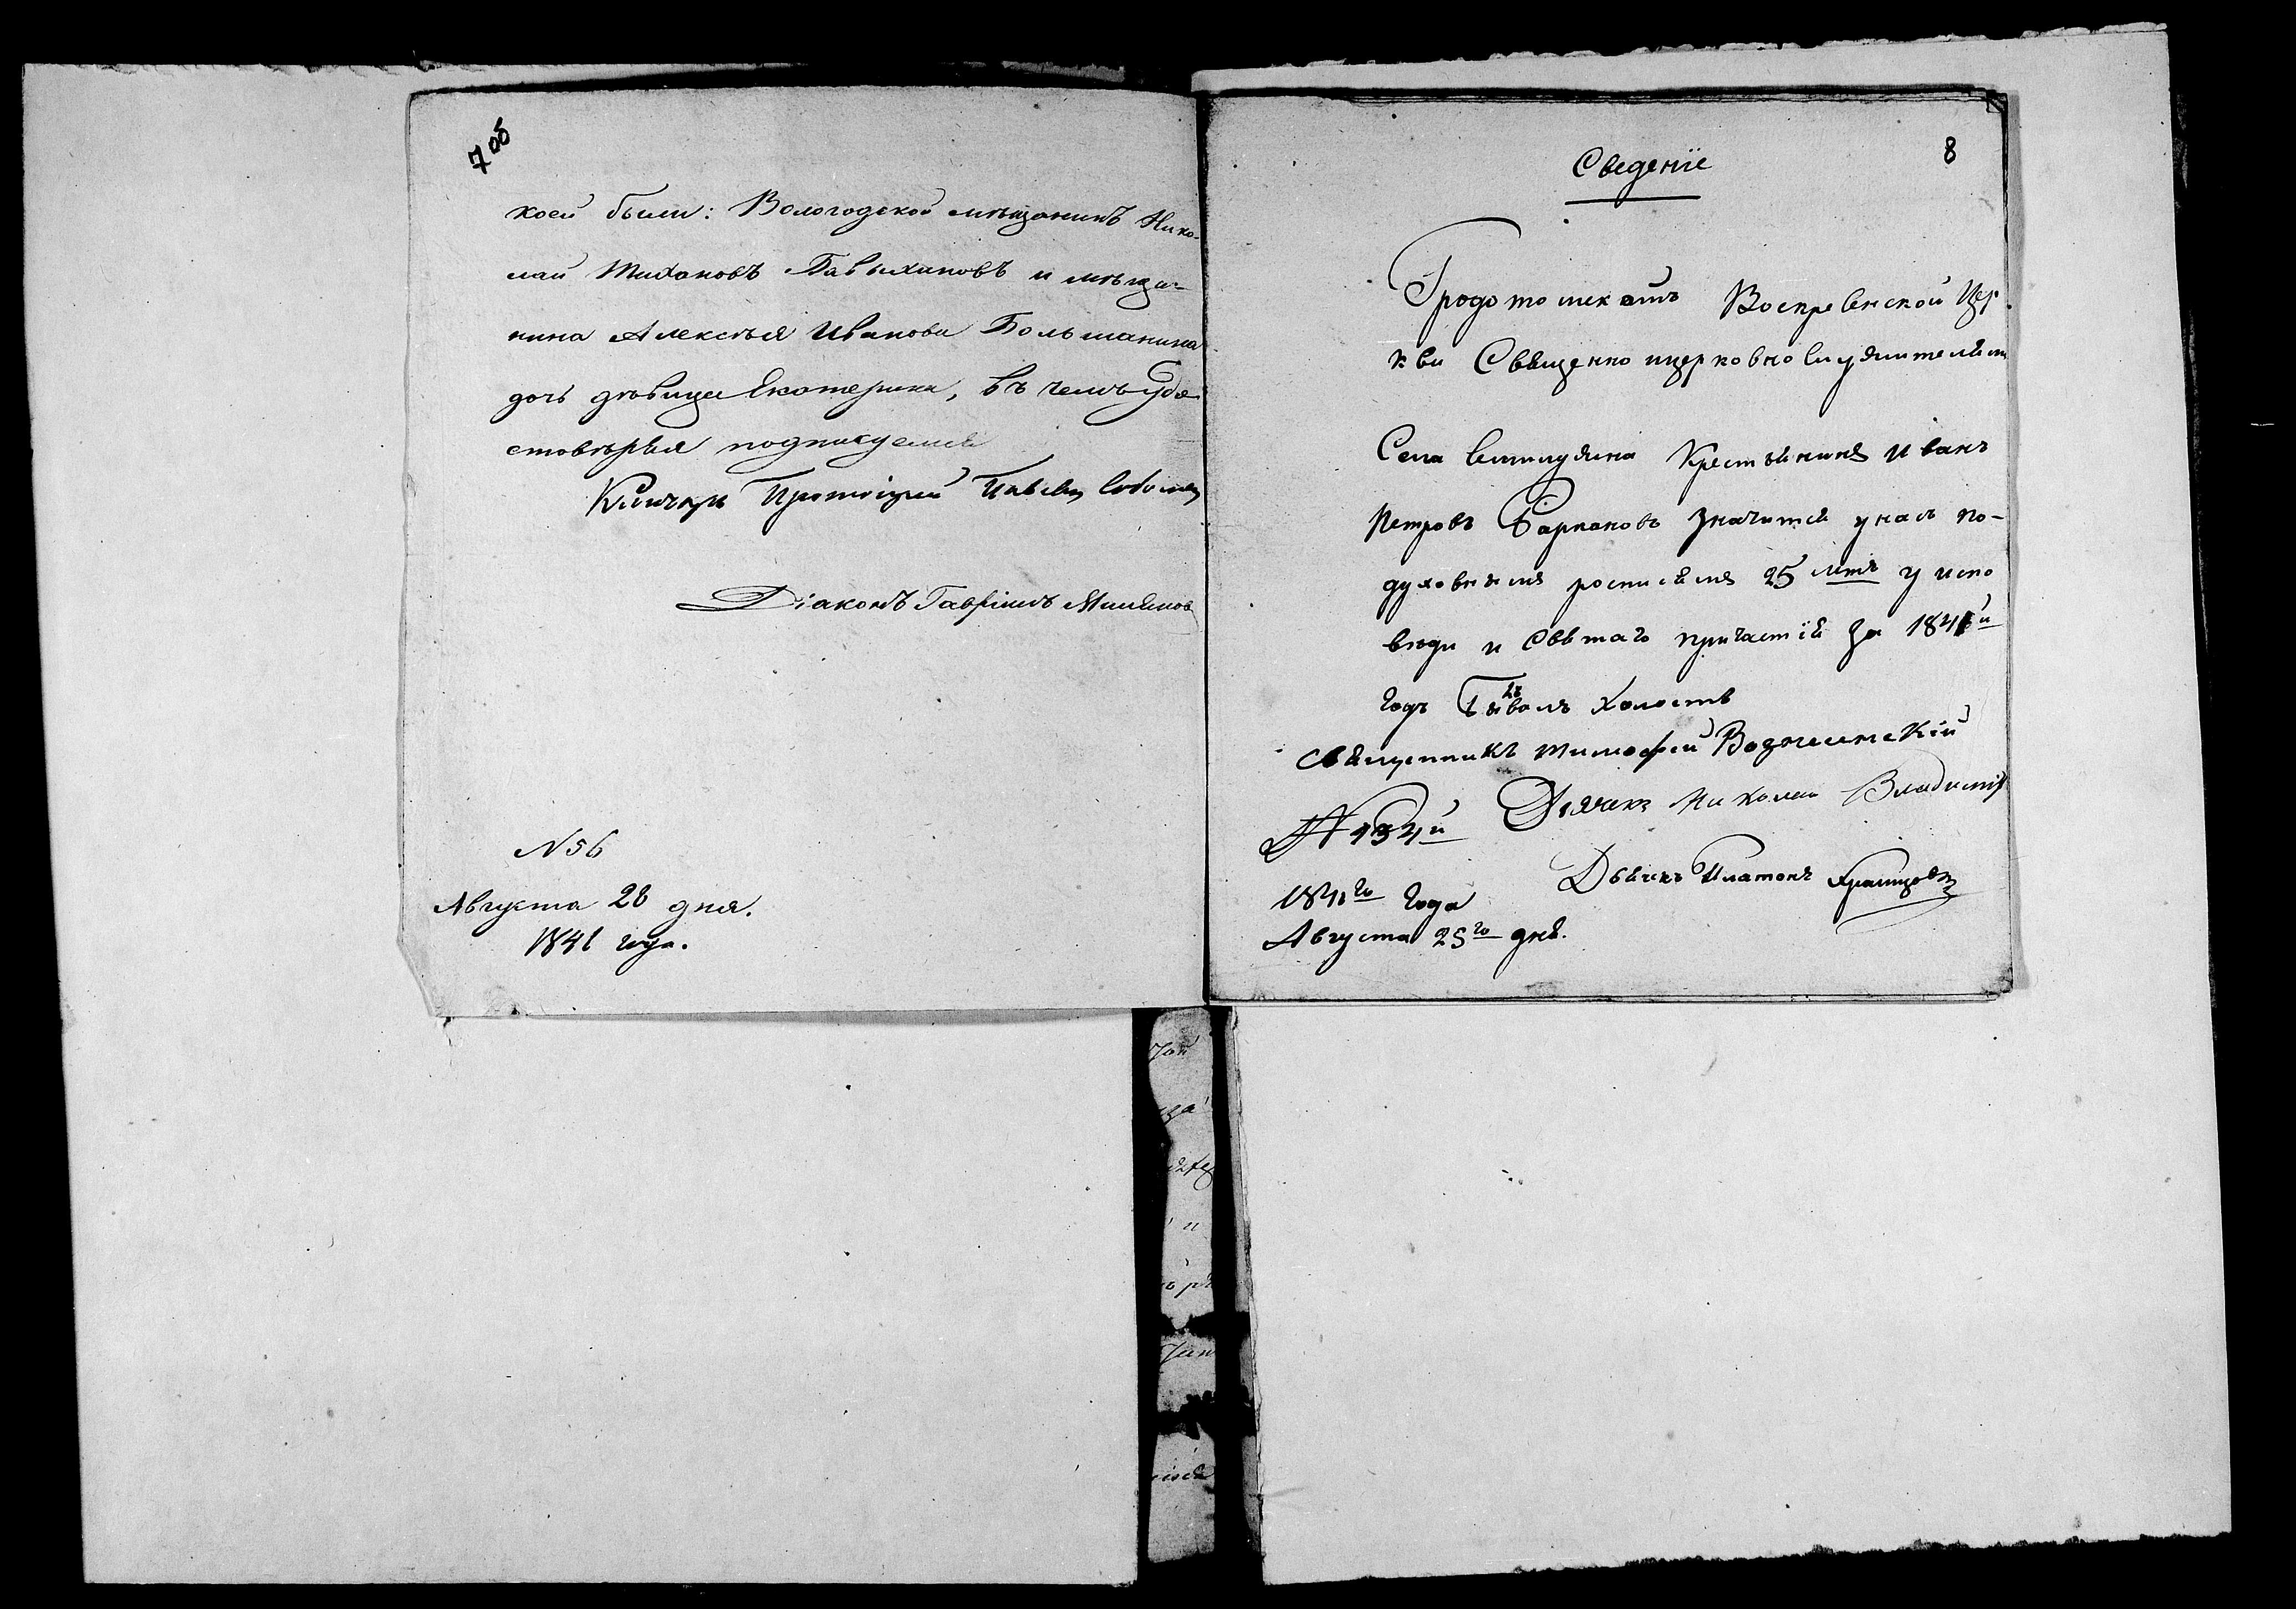 7 об
коей были: Вологодской мѣщанинъ Нико-
лай Тихоновъ и мѣща-
нина Алексѣя Иванова Большанина
дочь дѣвица Екатерина, въ чемъ удо
стовѣряя подписуемся
Ключарь Протоіерей Павелъ
Діаконъ Гавріилъ
N 56
Августа 28 дня.
1841 года.
8
Сведенїе
Градо Воскресенской Цер
кви Священно ицерковнослужители
Села Крестьянинъ Иванъ
Петровъ Барканова значится унасъ по-
духовнымъ росписямъ 25 лѣтъ у испо
вѣди и Свѣтаго причастїя за 1841й
годъ Бывалъ холостъ
Священникъ Тимофей
Дьячекъ Николай Владимір
N 134й
Платонъ
1841го Года
Августа 25го дня.